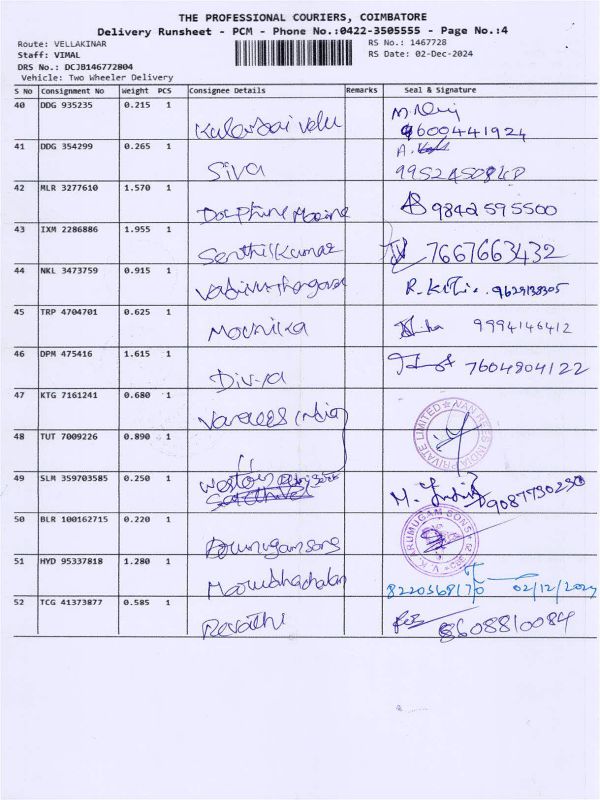 THE PROFESSIONAL COURIERS, COIMBATORE
Delivery Runsheet - PCM - Phone No.:0422-3505555 - Page No.:4
Route: VELLAKINAR RS No.: 1467728
Staff: VIMAL RS Date: 02-Dec-2024
DRS No.: DCJB146772804
Vehicle: Two Wheeler Delivery
S No Consignment No Weight PCS Consignee Details Remarks Seal & Signature
40 DDG 935235 0.215 1 9600441924
41 DDG 354299 0.265 1 Siva A.
42 MLR 3277610 1.570 1 9842595500
43 IXM 2286886 1.955 1 Senthilkumar 7667663432
44 NKL 3473759 0.915 1 9629138305
45 TRP 4704701 0.625 1 Mounika 9994146412
46 DPM 475416 1.615 1 Divya 7604904122
47 KTG 7161241 0.680 1 Vanrees India
VAN REES INDIA PRIVATE LIMITED
48 TUT 7009226 0.890 1 "
49 SLM 359703585 0.250 1 M. 9087790290
50 BLR 100162715 0.220 1 Arumugam sons
V.K. ARUMUGAM SONS
51 HYD 95337818 1.280 1 8220368170 02/12/2024
52 TCG 41373877 0.585 1 Revathi 8608810084